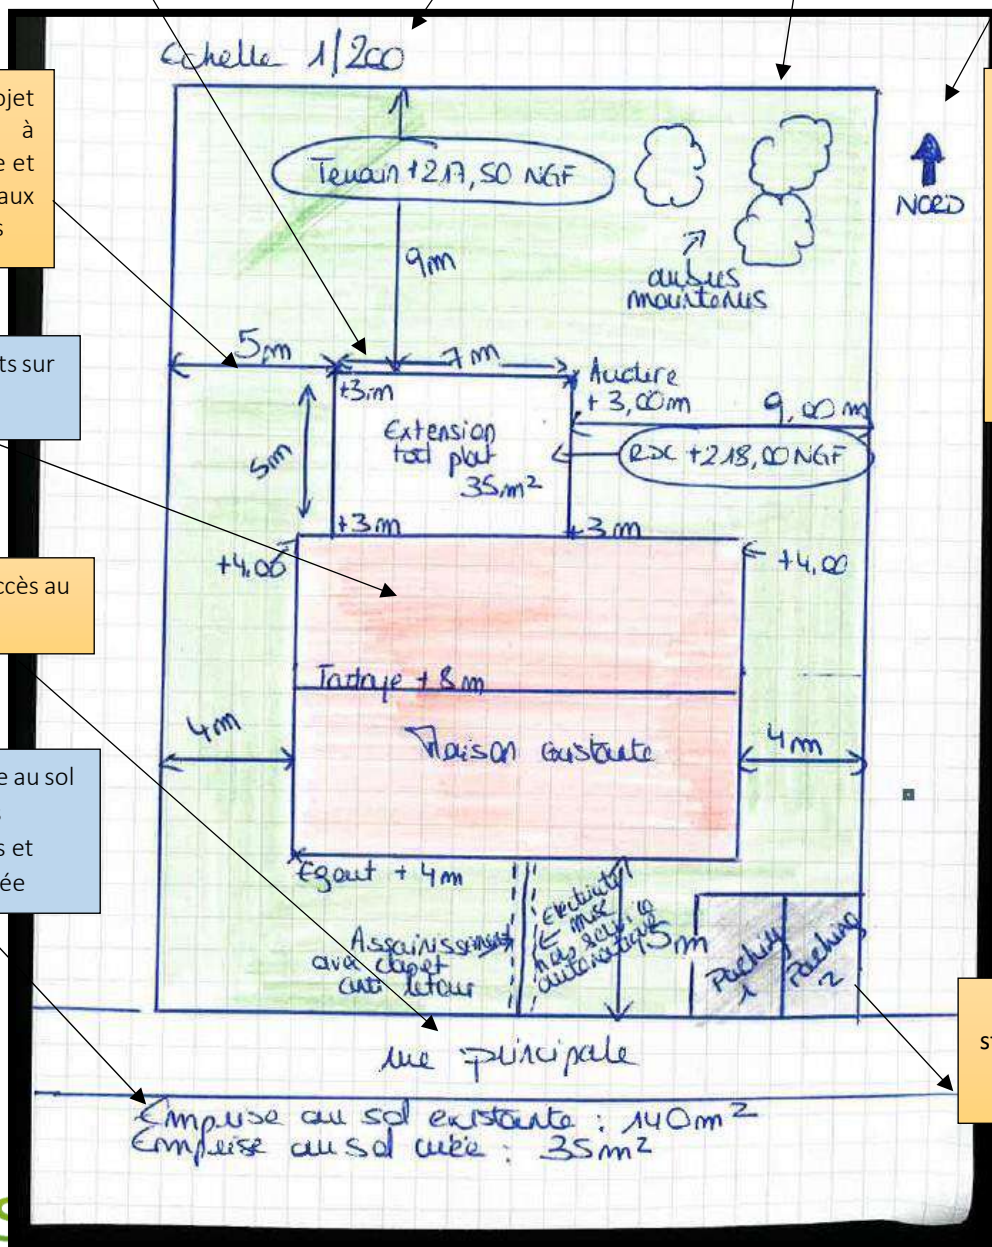 Echelle 1/200
ojet
à
e et
aux
s
Terrain +217,50 NGF
NORD
9m
arbres
maintenus
5m
7m
ts sur
+3m
Acrotère
+3,00m
9,00m
5m
Extension
toit plat
35m²
RDC +218,00 NGF
+3m
+3m
+4.00
+4,00
ccès au
Faitage +8m
4m
Maison existante
4m
e au sol
s
s et
ée
Egout +4m
Assainissement
avec clapet
anti retour
Electricité
mise
hors service
automatique
5m
Parking
1
Parking
2
st
rue principale
Emprise au sol existante : 140m²
Emprise au sol créée : 35m²